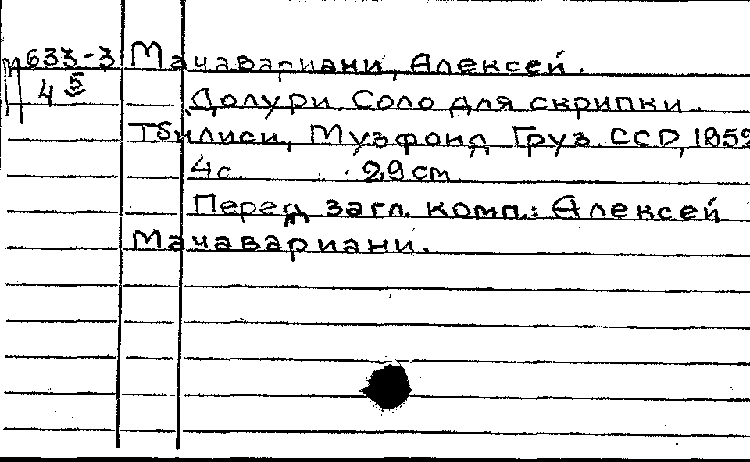 П633-3 Мачавариани, Алексей.
4 5
Долури. Соло для скрипки.
Тбилиси, Музфонд Груз. ССР, 1952
4с. 29 см
Перед загл. комп.: Алексей
Мачавариани.